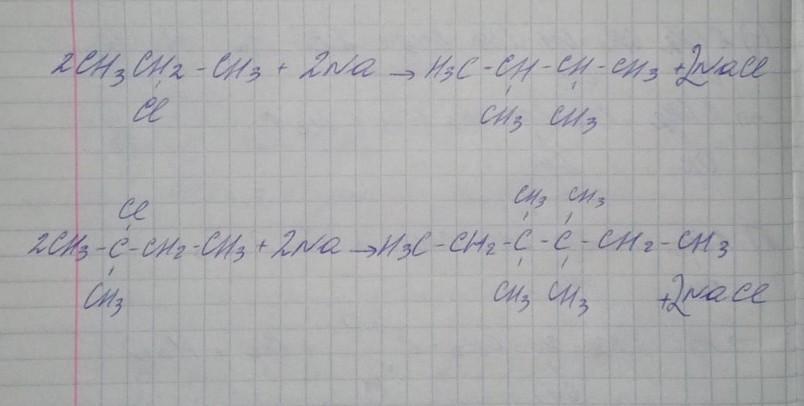 2CH3CH2-CH3 + 2Na → H3C-CH-CH-CH3 + 2NaCl
Cl CH3 CH3
Cl CH3 CH3
2CH3-C-CH2-CH3 + 2Na → H3C-CH2-C-C-CH2-CH3
CH3 CH3 CH3 +2NaCl